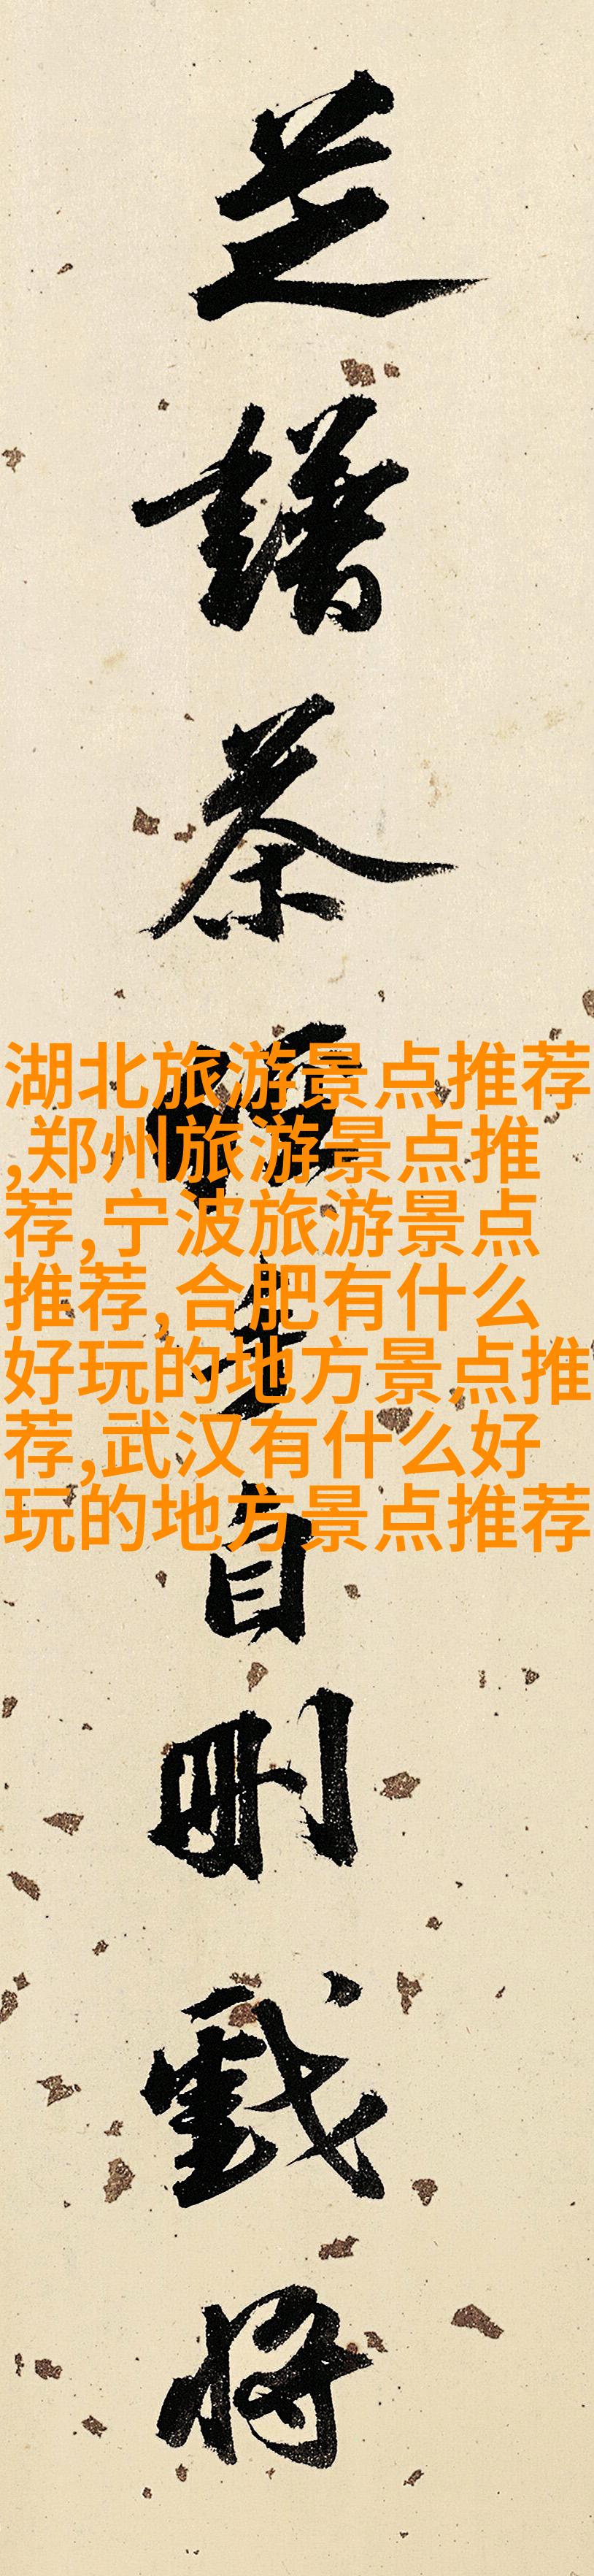 芝譜茶自刪戲將
湖北旅游景点推荐
,郑州旅游景点推
荐,宁波旅游景点
推荐,合肥有什么
好玩的地方景点推
荐,武汉有什么好
玩的地方景点推荐